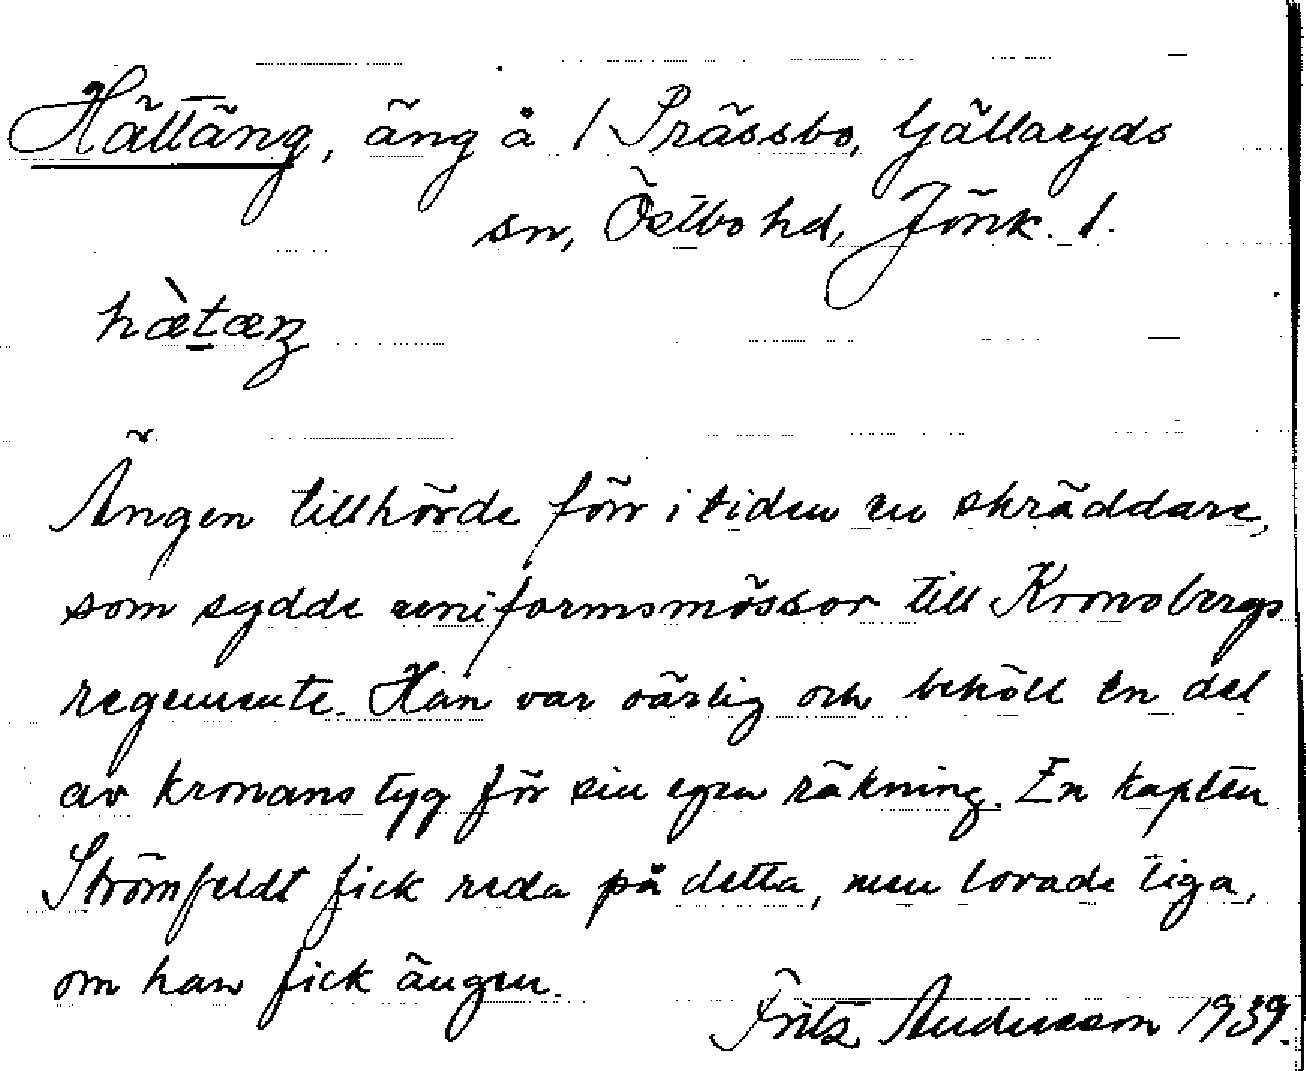 Hättäng, äng å 1 Prässbo, Gällaryds
sn, Östbo hd, Jönk. l.
hæ̀tæŋ
Ängen tillhörde förr i tiden en skräddare,
som sydde uniformsmössor till Kronobergs
regemente. Han var oärlig och behöll en del
av kronans tyg för sin egen räkning. En kapten
Strömfeldt fick reda på detta, men lovade tiga,
om han fick ängen.
Fritz Andersson 1939.